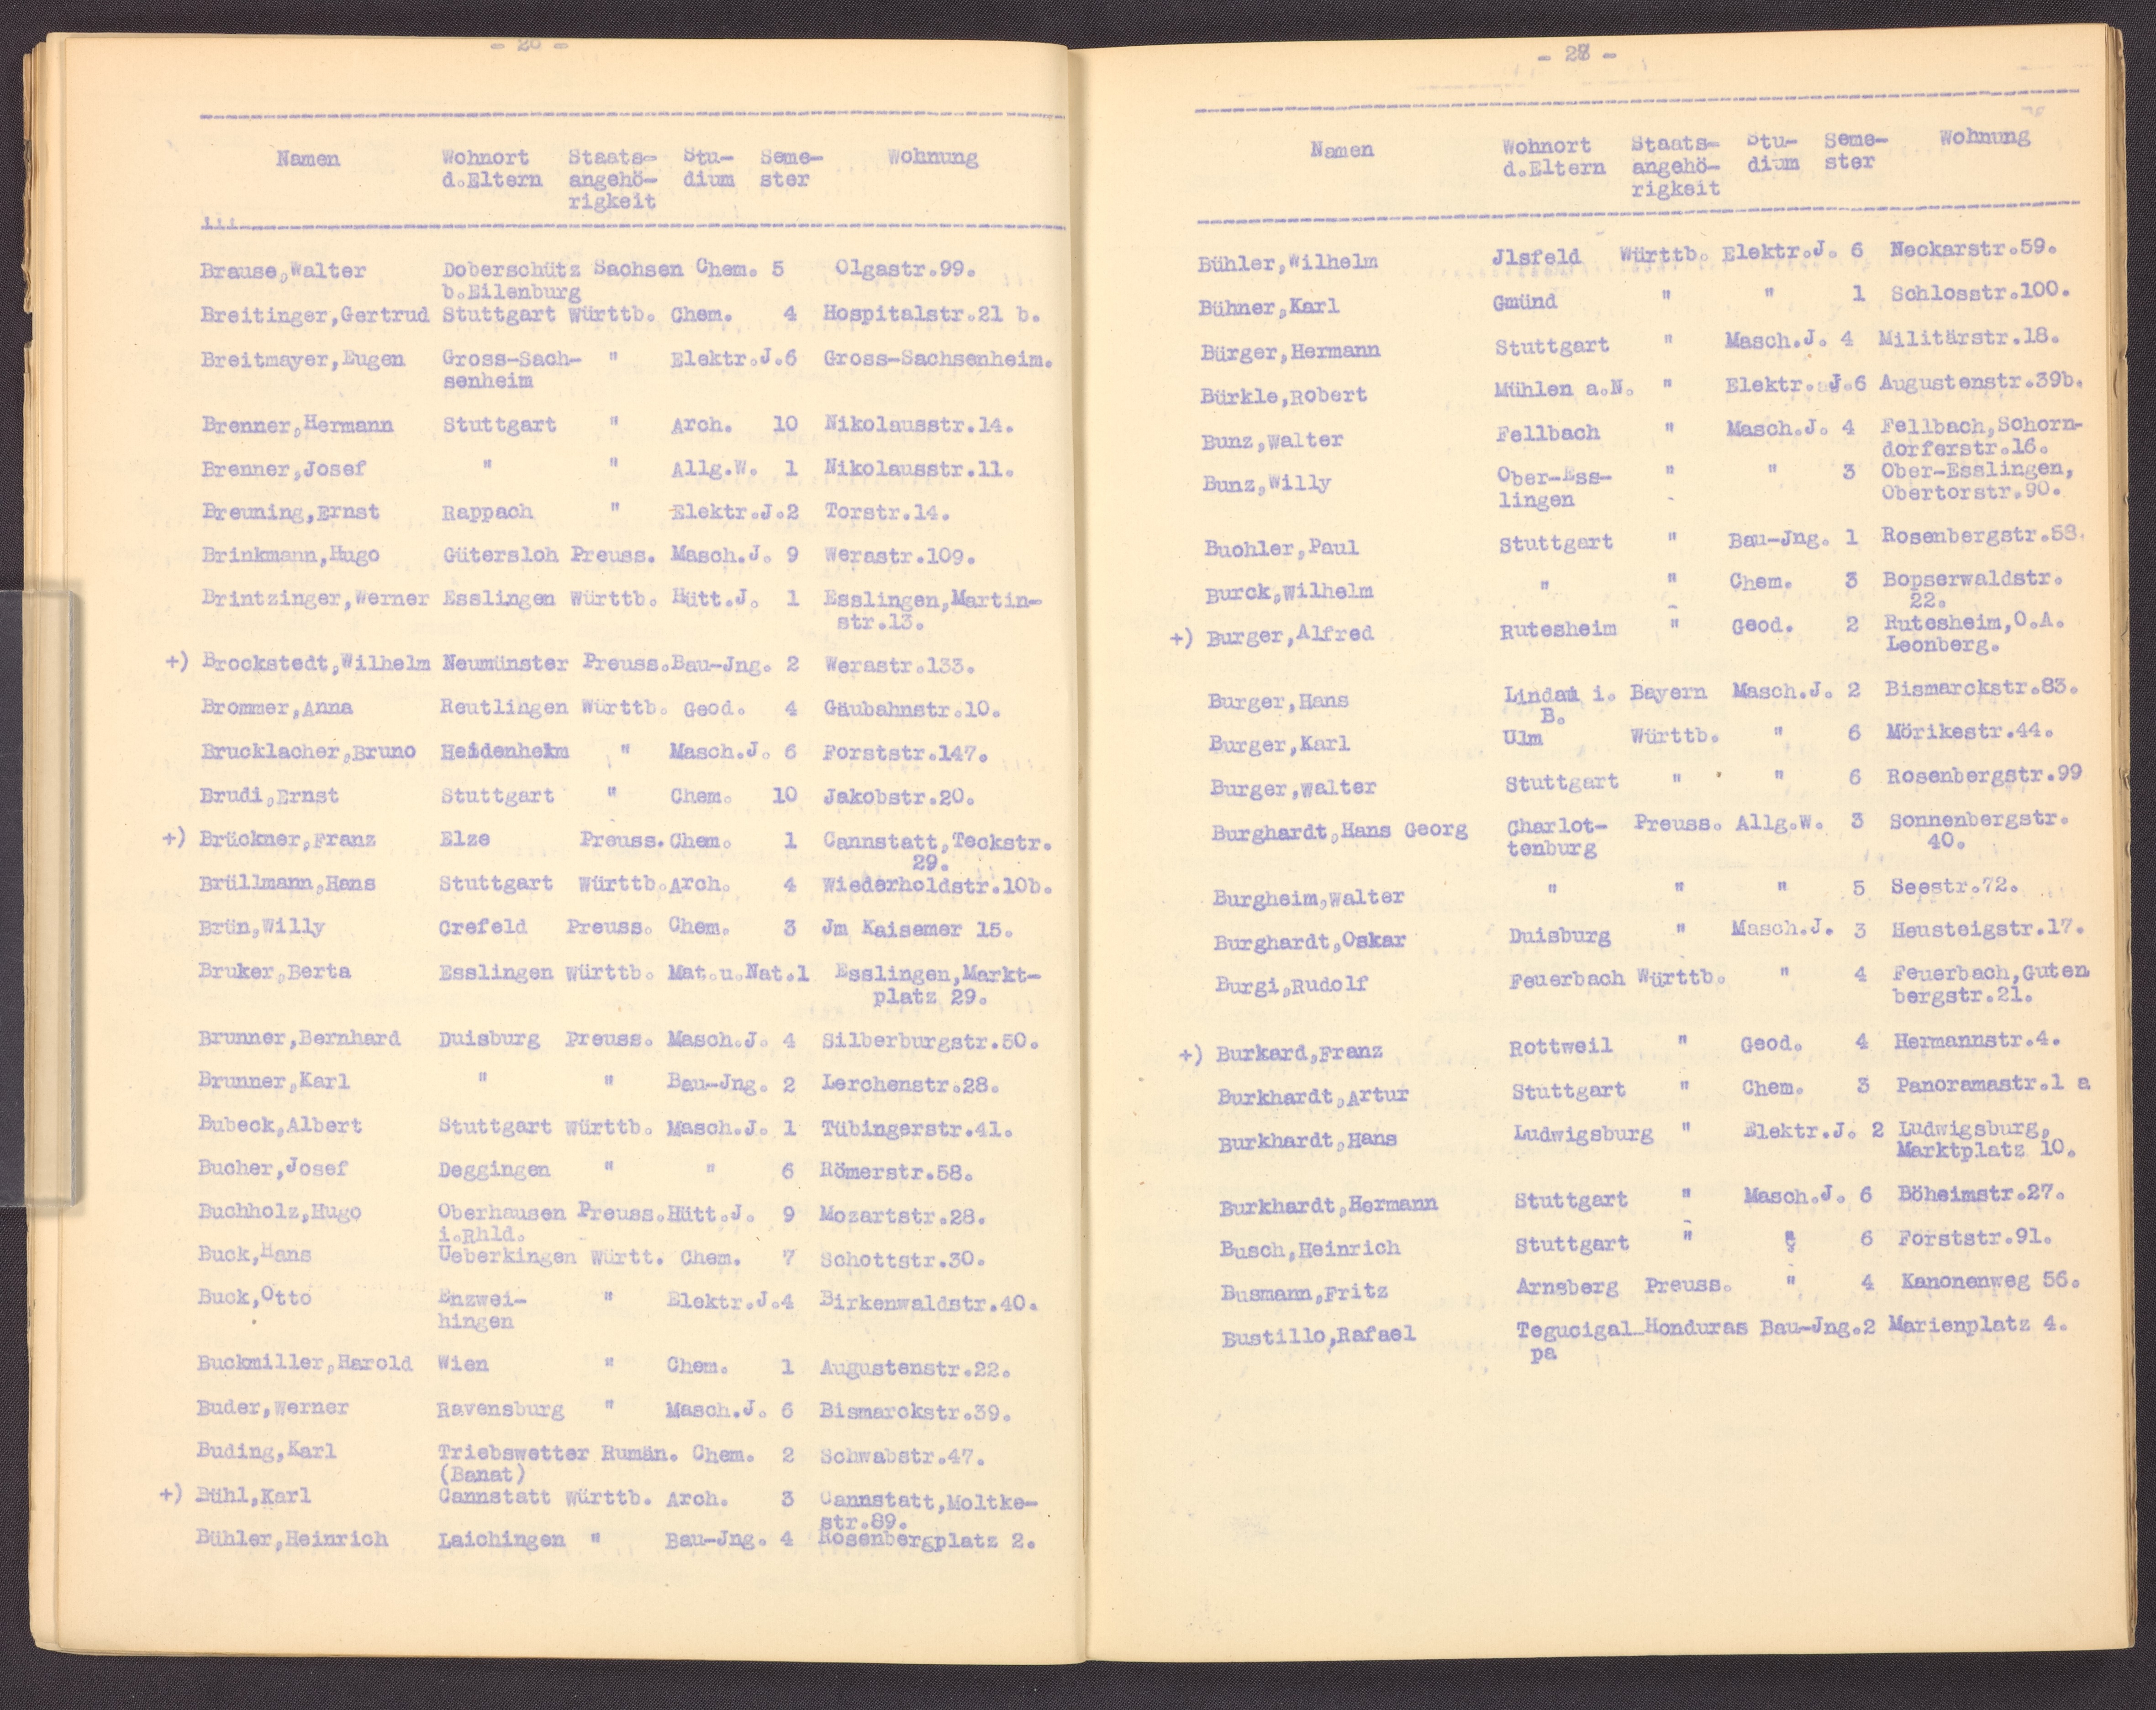 - 26 -
Namen Wohnort Staats- Stu- Seme- Wohnung
d.Eltern angehö- dium ster
rigkeit
Brause,Walter Doberschütz Sachsen Chem. 5 Olgastr.99.
b.Eilenburg
Breitinger,Gertrud Stuttgart Württb. Chem. 4 Hospitalstr.21 b.
Breitmayer,Eugen Gross-Sach- " Elektr.J.6 Gross-Sachsenheim.
senheim
Brenner,Hermann Stuttgart " Arch. 10 Nikolausstr.14.
Brenner,Josef " " Allg.W. 1 Nikolausstr.11.
Breuning,Ernst Rappach " Elektr.J.2 Torstr.14.
Brinkmann,Hugo Gütersloh Preuss. Masch.J. 9 Werastr.109.
Brintzinger,Werner Esslingen Württb. Hütt.J. 1 Esslingen,Martin-
str.13.
+) Brockstedt,Wilhelm Neumünster Preuss.Bau-Jng. 2 Werastr.133.
Brommer,Anna Reutlingen Württb. Geod. 4 Gäubahnstr.10.
Brucklacher,Bruno Heidenheim " Masch.J. 6 Forststr.147.
Brudi,Ernst Stuttgart " Chem. 10 Jakobstr.20.
+) Brückner,Franz Elze Preuss.Chem. 1 Cannstatt,Teckstr.
29.
Brüllmann,Hans Stuttgart Württb.Arch. 4 Wiederholdstr.10b.
Brün,Willy Crefeld Preuss. Chem. 3 Jm Kaisemer 15.
Bruker,Berta Esslingen Württb. Mat.u.Nat.1 Esslingen,Markt-
platz 29.
Brunner,Bernhard Duisburg Preuss. Masch.J. 4 Silberburgstr.50.
Brunner,Karl " " Bau-Jng. 2 Lerchenstr.28.
Bubeck,Albert Stuttgart Württb. Masch.J. 1 Tübingerstr.41.
Bucher,Josef Deggingen " " 6 Römerstr.58.
Buchholz,Hugo Oberhausen Preuss.Hütt.J. 9 Mozartstr.28.
i.Rhld.
Buck,Hans Ueberkingen Württ. Chem. 7 Schottstr.30.
Buck,Otto Enzwei- " Elektr.J.4 Birkenwaldstr.40.
hingen
Buckmiller,Harold Wien " Chem. 1 Augustenstr.22.
Buder,Werner Ravensburg " Masch.J. 6 Bismarckstr.39.
Buding,Karl Triebswetter Rumän. Chem. 2 Schwabstr.47.
(Banat)
+) Bühl,Karl Cannstatt Württb. Arch. 3 Cannstatt,Moltke-
str.89.
Bühler,Heinrich Laichingen " Bau-Jng. 4 Rosenbergplatz 2.
- 28 -
Namen Wohnort Staats- Stu- Seme- Wohnung
d.Eltern angehö- dium ster
rigkeit
Bühler,Wilhelm Jlsfeld Württb. Elektr.J. 6 Neckarstr.59.
Bühner,Karl Gmünd " " 1 Schlosstr.100.
Bürger,Hermann Stuttgart " Masch.J. 4 Militärstr.18.
Bürkle,Robert Mühlen a.N. " Elektr.J.6 Augustenstr.39b.
Bunz,Walter Fellbach " Masch.J. 4 Fellbach,Schorn-
dorferstr.16.
Bunz,Willy Ober-Ess- " " 3 Ober-Esslingen,
lingen Obertorstr.90.
Buohler,Paul Stuttgart " Bau-Jng. 1 Rosenbergstr.58.
Burck,Wilhelm " " Chem. 3 Bopserwaldstr.
22.
+) Burger,Alfred Rutesheim " Geod. 2 Rutesheim,O.A.
Leonberg.
Burger,Hans Lindau i. Bayern Masch.J. 2 Bismarckstr.83.
B.
Burger,Karl Ulm Württb. " 6 Mörikestr.44.
Burger,Walter Stuttgart " " 6 Rosenbergstr.99
Burghardt,Hans Georg Charlot- Preuss. Allg.W. 3 Sonnenbergstr.
tenburg 40.
Burgheim,Walter " " " 5 Seestr.72.
Burghardt,Oskar Duisburg " Masch.J. 3 Heusteigstr.17.
Burgi,Rudolf Feuerbach Württb. " 4 Feuerbach,Guten
bergstr.21.
+) Burkard,Franz Rottweil " Geod. 4 Hermannstr.4.
Burkhardt,Artur Stuttgart " Chem. 3 Panoramastr.1 a
Burkhardt,Hans Ludwigsburg " Elektr.J. 2 Ludwigsburg,
Marktplatz 10.
Burkhardt,Hermann Stuttgart " Masch.J. 6 Böheimstr.27.
Busch,Heinrich Stuttgart " " 6 Forststr.91.
Busmann,Fritz Arnsberg Preuss. " 4 Kanonenweg 56.
Bustillo,Rafael Tegucigal-Honduras Bau-Jng.2 Marienplatz 4.
pa